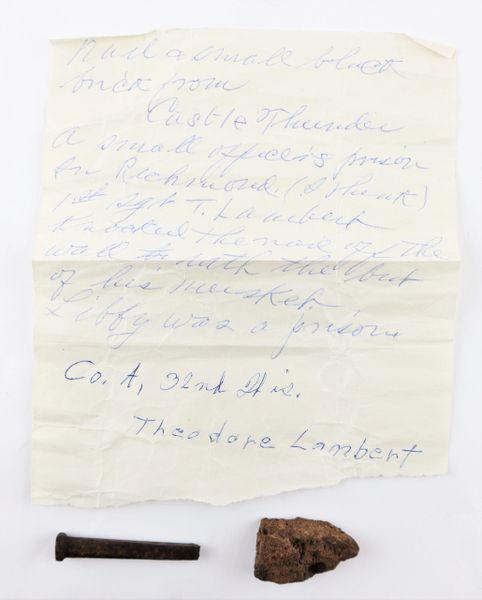 Nail a small block
brick from
Castle Thunder
a small officers prison
in Richmond. (I think)
1st Sgt T. Lambert
knocked the nail of the
wall to with the but
of his musket,
Libby was a prison
Co. A, 32nd Wis.
Theodore Lambert